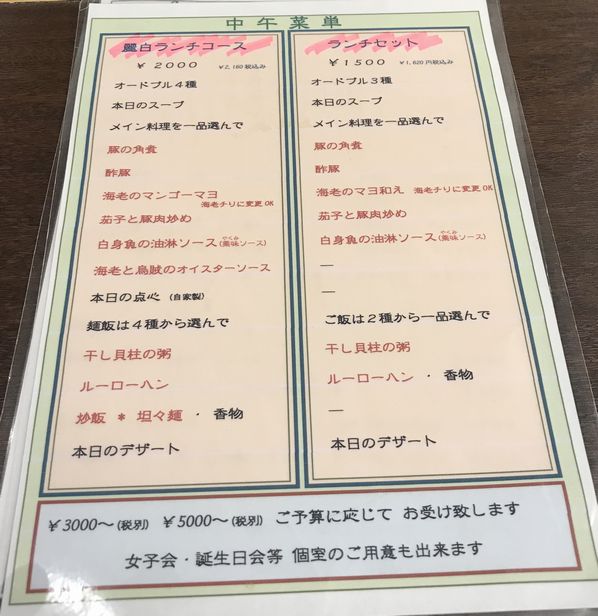 中午菜単
麗白ランチコース
￥2000 ￥2,160税込み
オードブル４種
本日のスープ
メイン料理を一品選んで
豚の角煮
酢豚
海老のマンゴーマヨ
海老チリに変更OK
茄子と豚肉炒め
白身魚の油淋ソース(薬味ソース)
海老と烏賊のオイスターソース
本日の点心 (自家製)
麺飯は４種から選んで
干し貝柱の粥
ルーローハン
炒飯 * 坦々麺 ・ 香物
本日のデザート
ランチセット
￥1500 ￥1,620円税込み
オードブル３種
本日のスープ
メイン料理を一品選んで
豚の角煮
酢豚
海老のマヨ和え 海老チリに変更OK
茄子と豚肉炒め
やくみ
白身魚の油淋ソース(薬味ソース)
—
—
ご飯は２種から一品選んで
干し貝柱の粥
ルーローハン ・ 香物
—
本日のデザート
￥3000〜(税別) ￥5000〜(税別) ご予算に応じて お受け致します
女子会・誕生日会等 個室のご用意も出来ます